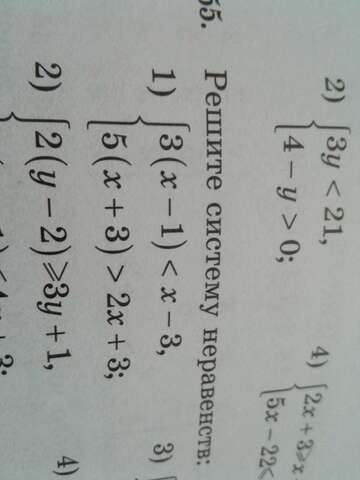 2) { 3y < 21,
4 − y > 0;
4) { 2x + 3 ⩾ x
5x − 22 <
55. Решите систему неравенств:
1) { 3(x − 1) < x − 3,
5(x + 3) > 2x + 3;
3) {
2) { 2(y − 2) ⩾ 3y + 1,
4)